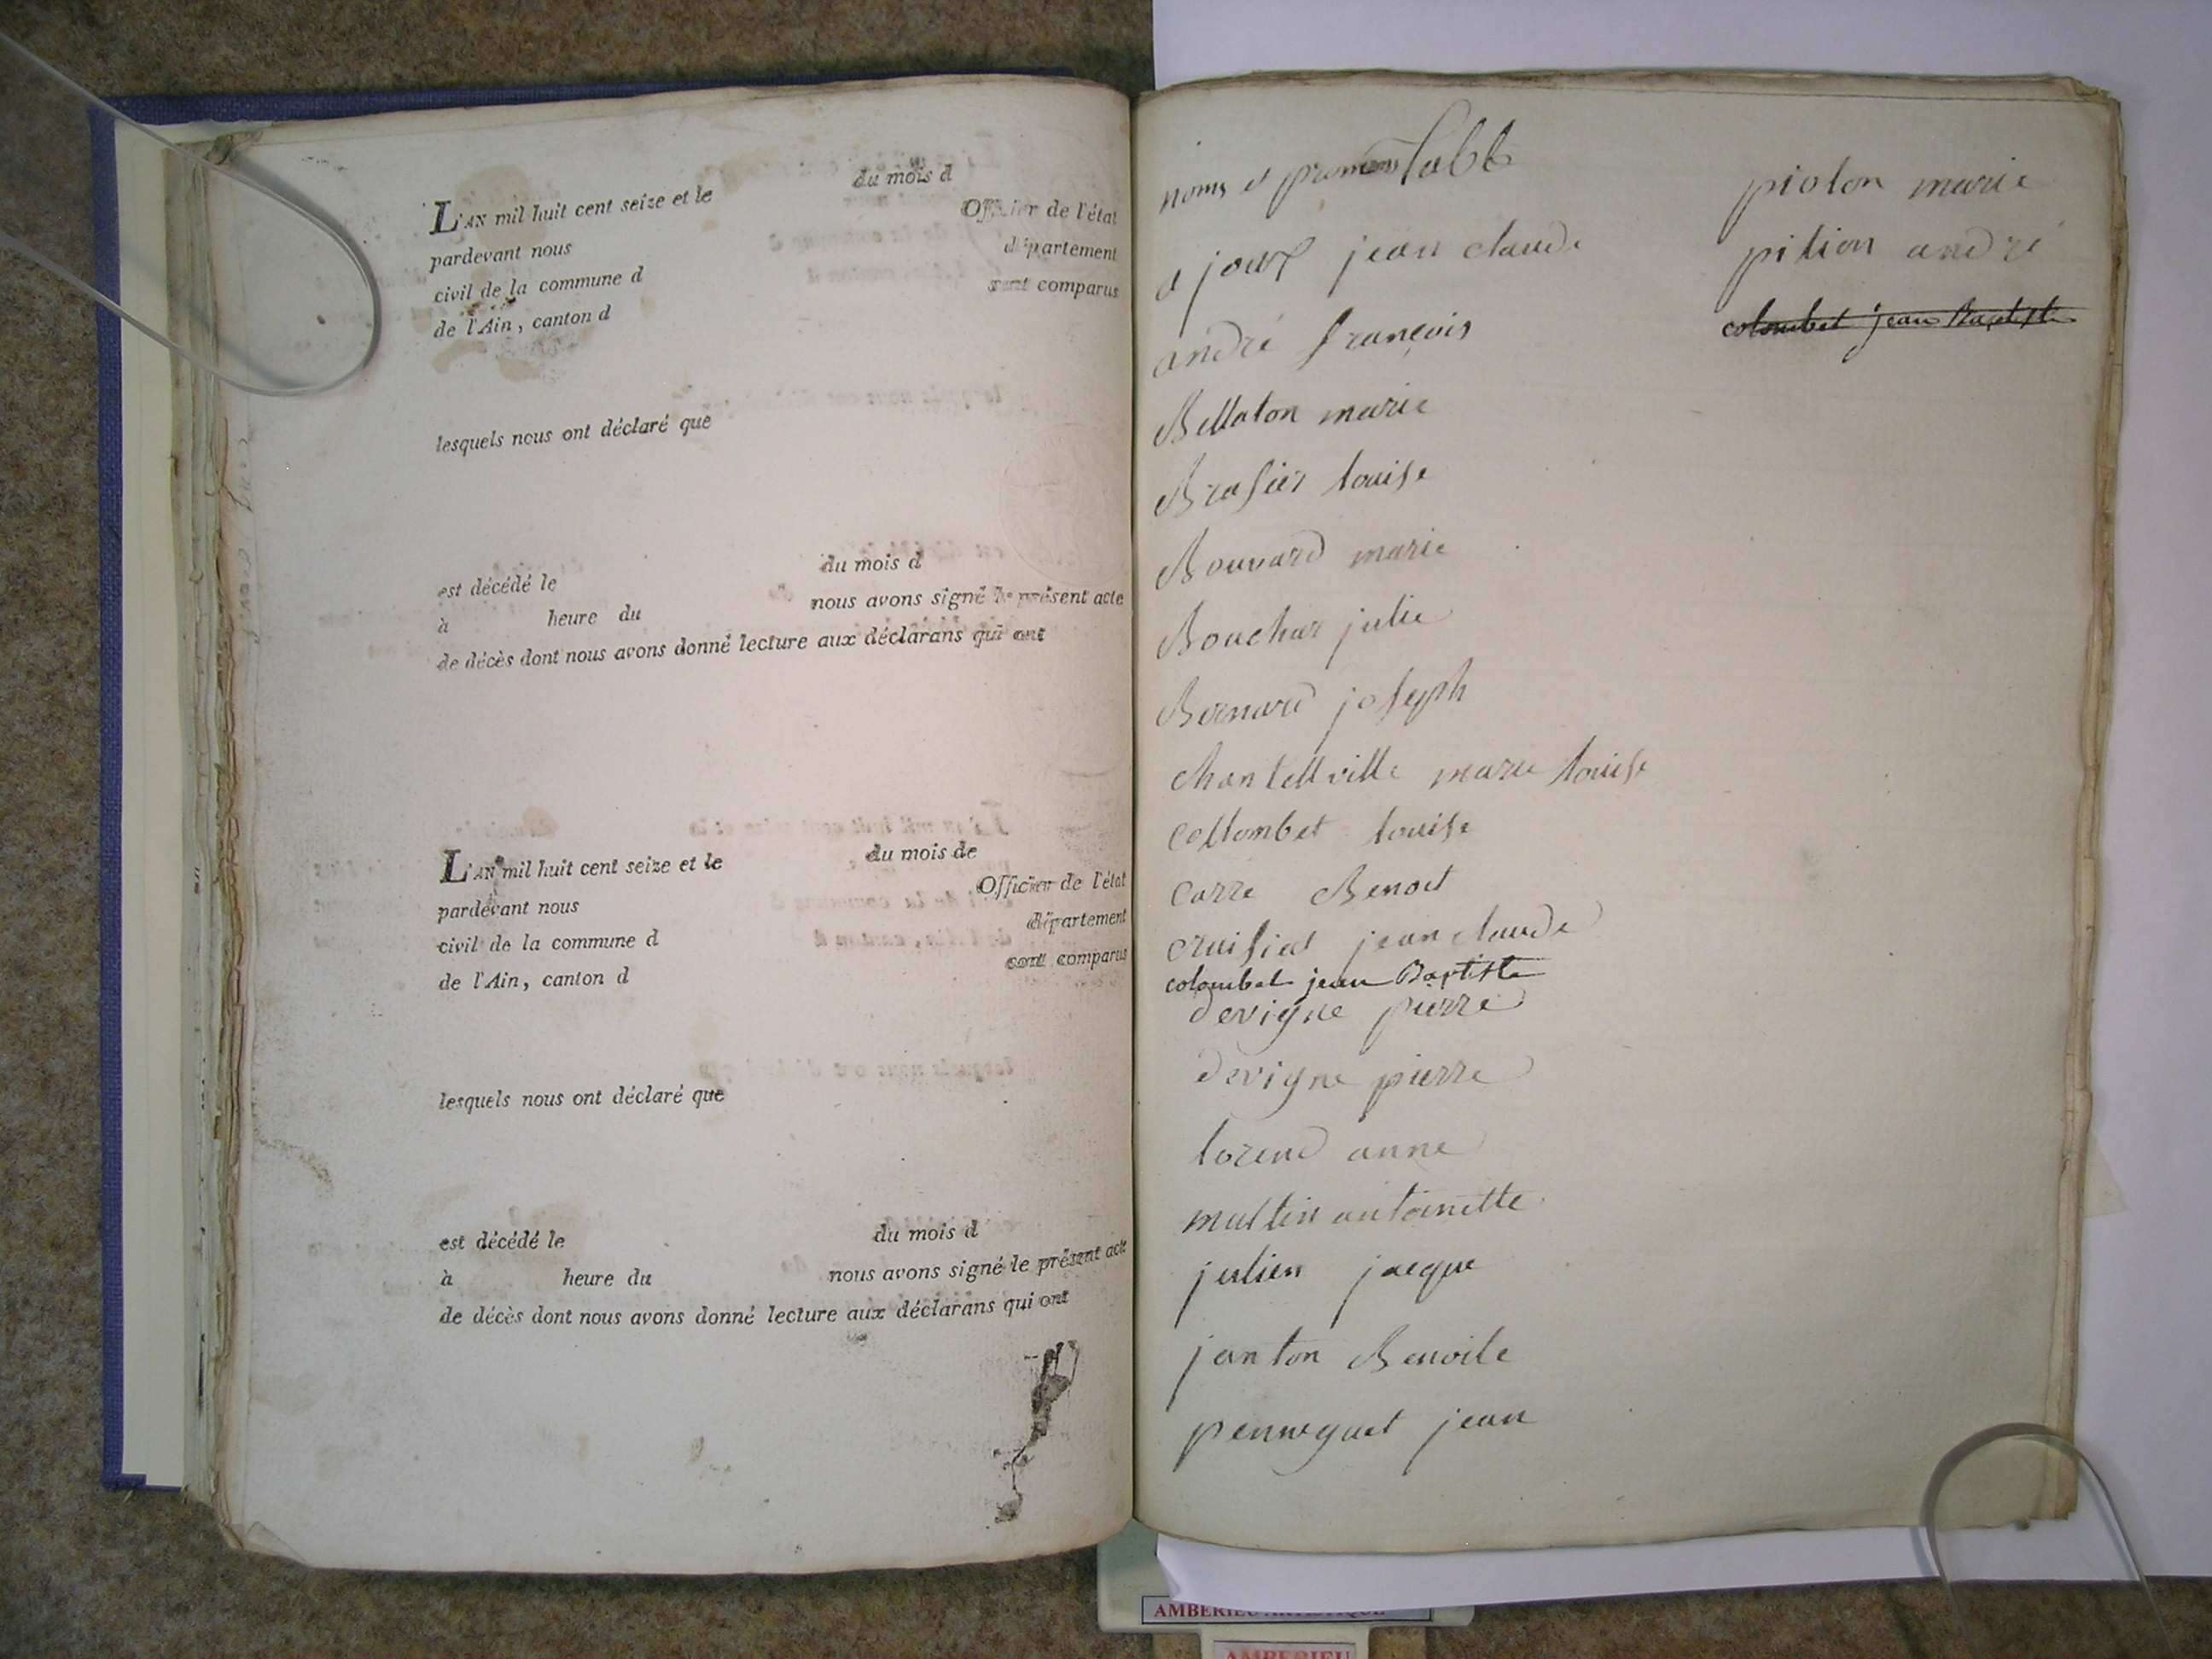 du mois d
L'AN mil huit cent seize et le
pardevant nous Officier de l'état
civil de la commune d département
de l'Ain, canton d sont comparus
lesquels nous ont déclaré que
est décédé le du mois d
à heure du nous avons signé le présent acte
de décès dont nous avons donné lecture aux déclarans qui ont
L'AN mil huit cent seize et le du mois de
pardevant nous Officier de l'état
civil de la commune d département
de l'Ain, canton d sont comparus
lesquels nous ont déclaré que
est décédé le du mois d
à heure du nous avons signé le présent acte
de décès dont nous avons donné lecture aux déclarans qui ont
noms et prenoms table
ajoux jean claude
andré françois
Bellaton marie
Brasier louise
Bouvard marie
Bouchar julie
Bernard joseph
chantellville marie louise
collombet louise
carre Benoit
cruisiat jean claude
colombet jean Baptiste
devigne pierre
devigne pierre
lorend anne
multin antoinette
julien jacque
janton Benoite
pennequet jean
piolon marie
pition andré
colombet jean Baptiste
AMBERIEU